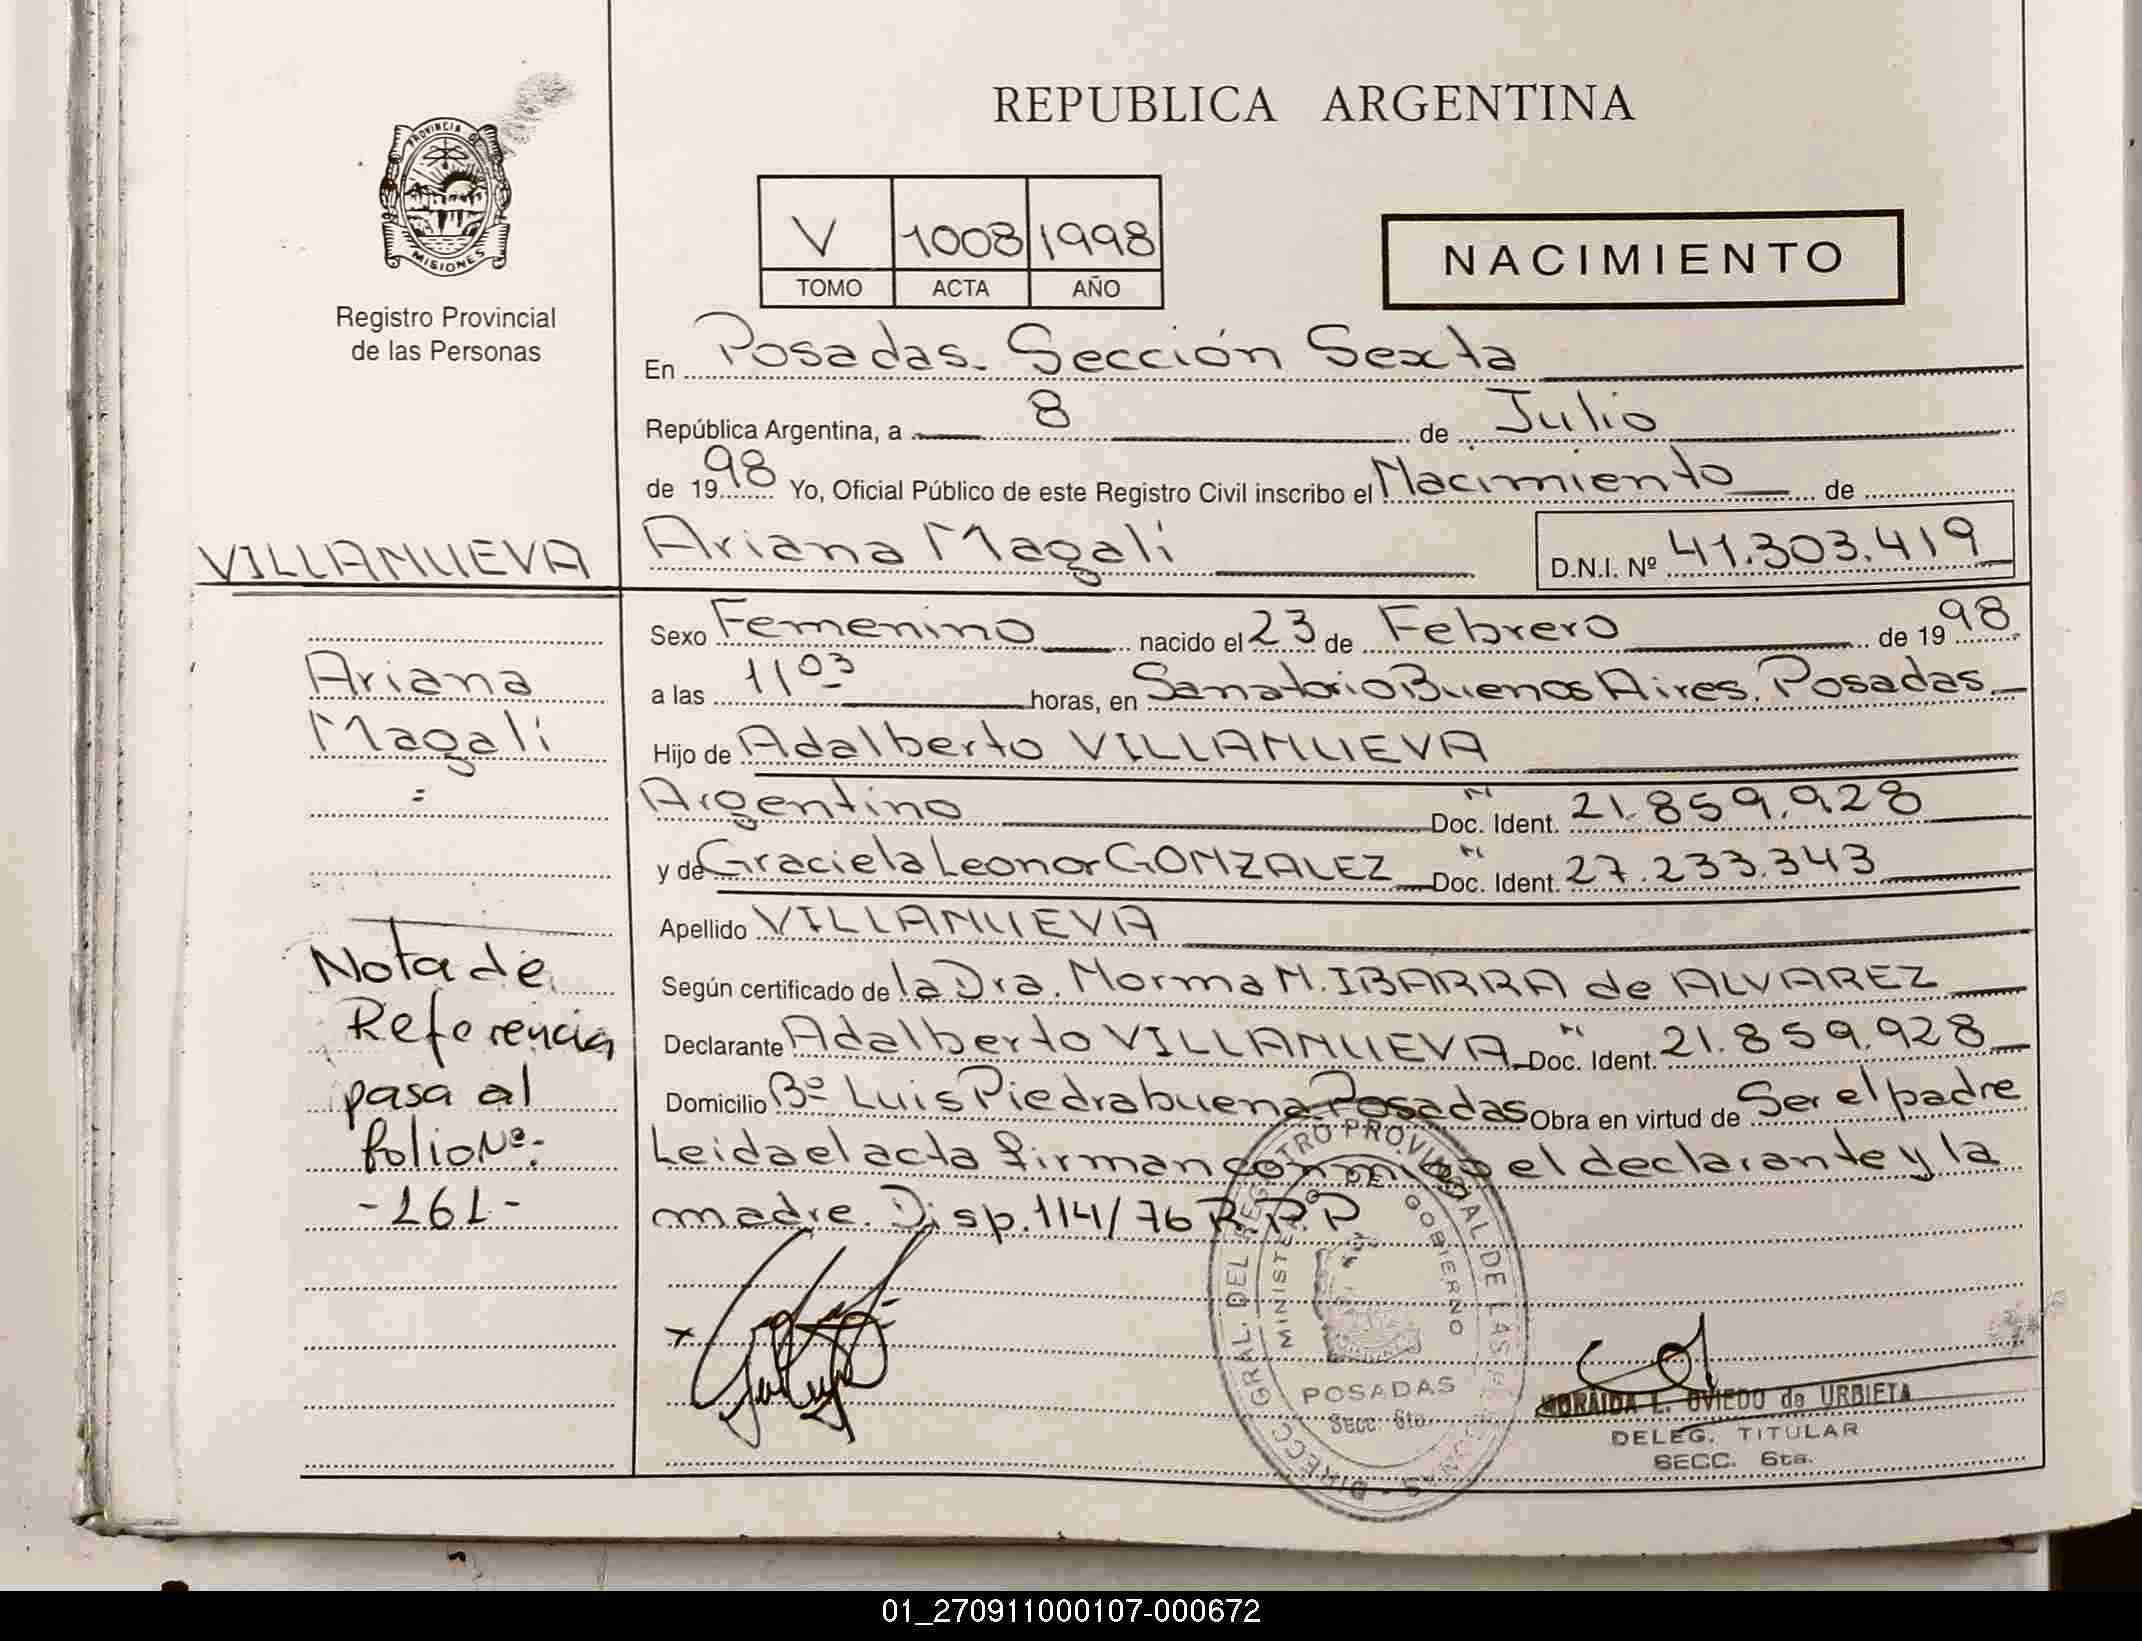 REPUBLICA ARGENTINA
PROVINCIA DE
MISIONES
Registro Provincial
de las Personas
V 1008 1998
TOMO ACTA AÑO
NACIMIENTO
En Posadas. Sección Sexta
República Argentina, a 8 de Julio
de 1998 Yo, Oficial Público de este Registro Civil inscribo el Nacimiento de
VILLANUEVA
Ariana Magali D.N.I. Nº 41.303.419
Sexo Femenino nacido el 23 de Febrero de 1998
Ariana
Magali
a las 11 03 horas, en Sanatorio Buenos Aires. Posadas
Hijo de Adalberto VILLANUEVA
Argentino Doc. Ident. 21.859.928
y de Graciela Leonor GONZALEZ Doc. Ident. 27.233.343
Apellido VILLANUEVA
Según certificado de la Dra. Norma N. IBARRA de ALVAREZ
Declarante Adalberto VILLANUEVA Doc. Ident. 21.859.928
Domicilio Bº Luis Piedrabuena Posadas Obra en virtud de Ser el padre
Leida el acta firman conmigo el declarante y la
madre. Disp. 114/76 R.P.P
Nota de
Referencia
pasa al
folio Nº:
-161-
DIRECC. GRAL. DEL REGISTRO PROVINCIAL DE LAS PERSONAS
MINISTERIO DE GOBIERNO
POSADAS
Secc. 6ta.
L. OVIEDO de URBIETA
DELEG. TITULAR
SECC. 6ta.
01_270911000107-000672